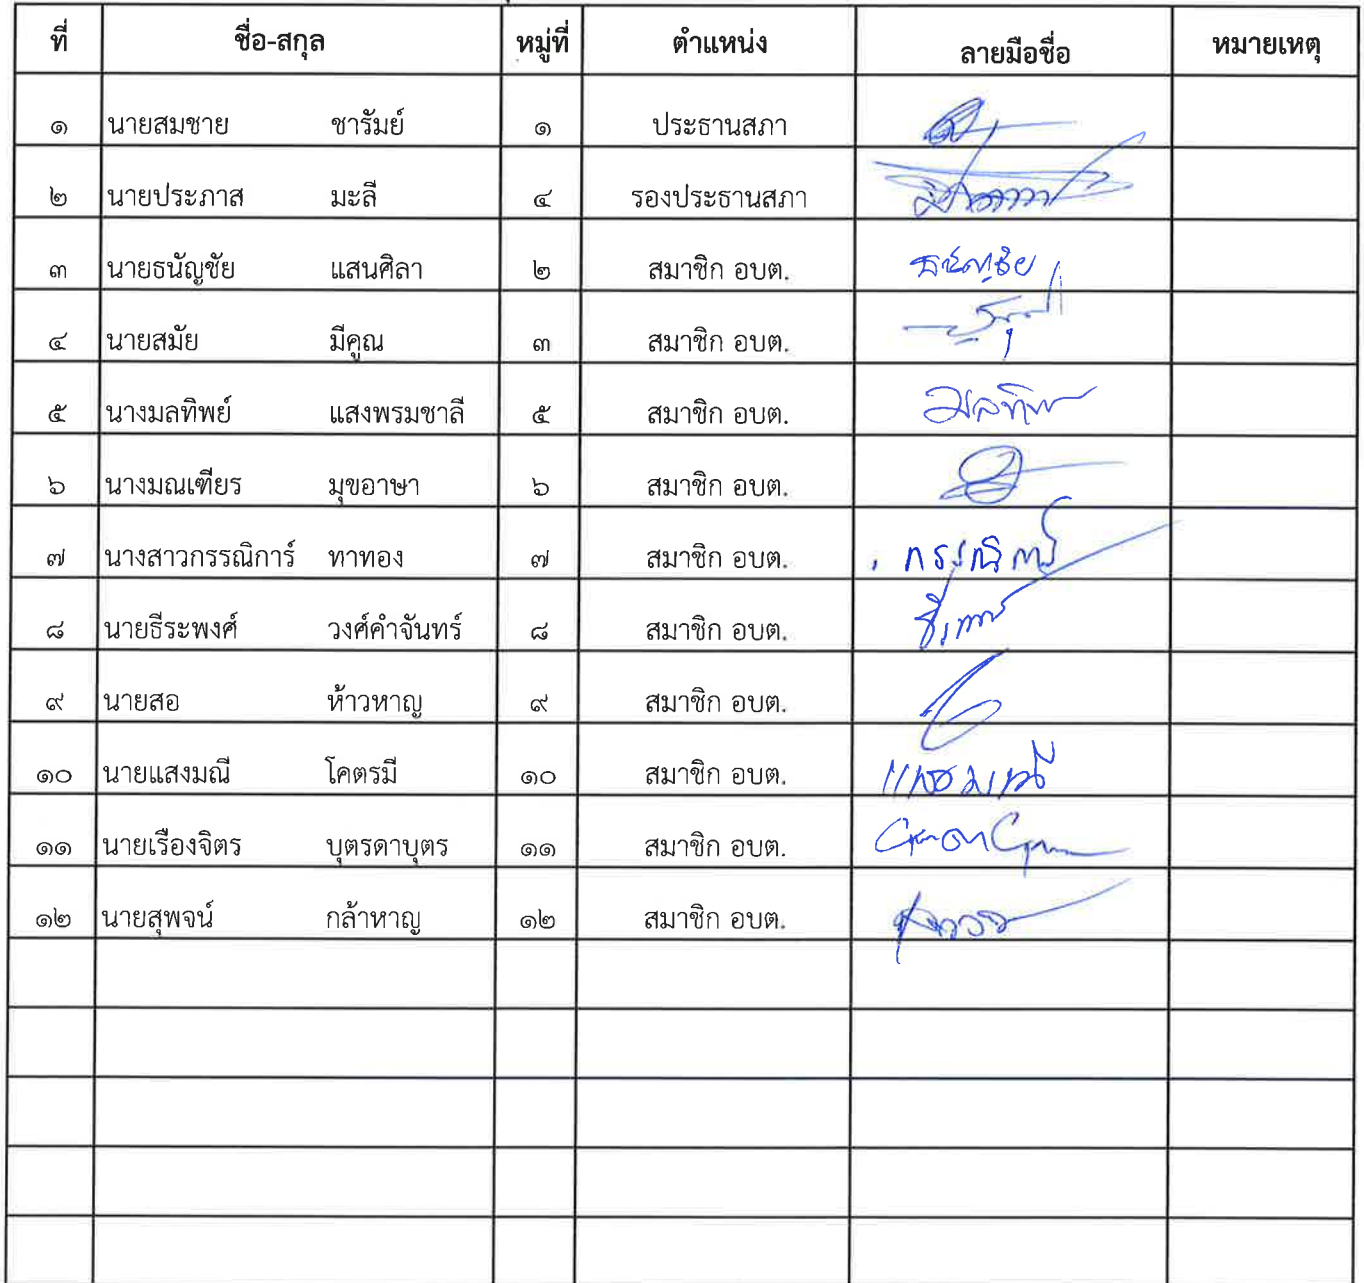 ที่ ชื่อ-สกุล หมู่ที่ ตำแหน่ง ลายมือชื่อ หมายเหตุ
๑ นายสมชาย ชารัมย์ ๑ ประธานสภา
๒ นายประภาส มะลี ๔ รองประธานสภา
๓ นายธนัญชัย แสนศิลา ๒ สมาชิก อบต. ธนัญชัย
๔ นายสมัย มีคูณ ๓ สมาชิก อบต.
๕ นางมลทิพย์ แสงพรมชาลี ๕ สมาชิก อบต. มลทิพ
๖ นางมณเฑียร มุขอาษา ๖ สมาชิก อบต.
๗ นางสาวกรรณิการ์ ทาทอง ๗ สมาชิก อบต. กรรณิการ์
๘ นายธีระพงศ์ วงศ์คำจันทร์ ๘ สมาชิก อบต.
๙ นายสอ ห้าวหาญ ๙ สมาชิก อบต.
๑๐ นายแสงมณี โคตรมี ๑๐ สมาชิก อบต. แสงมณี
๑๑ นายเรืองจิตร บุตรดาบุตร ๑๑ สมาชิก อบต.
๑๒ นายสุพจน์ กล้าหาญ ๑๒ สมาชิก อบต.